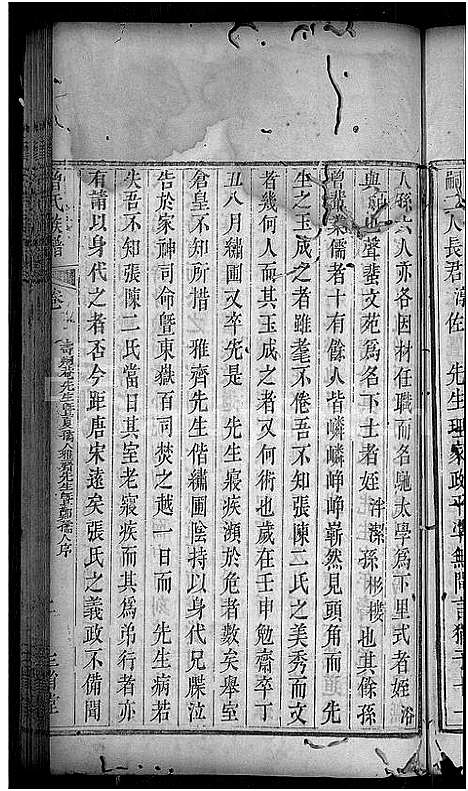 嗣
人長君
佐
先生理家政平
無間言猶子十一
人孫六人亦各因材任職而名馳太學為下里式者姪浴
與也聲蜚文苑為名下士者姪泮潔孫彬樓也其餘孫
曾業儒者十有餘人皆嶙嶙崢崢嶄然見頭角而先
生之玉成之者雖耄不倦吾不知張陳二氏之美秀而文
者幾何人而其玉成之者何術也歲在壬申勉齋卒丁
丑八月繡圃又卒先是先生寢疾瀕於危者數矣舉室
倉皇不知所措雅齊先生偕繡圃陰持以身代兄牒泣
告於家神司命曁東嶽百司焚之越一日而先生病若
失吾不知張陳二氏當日其室老寢疾而其為弟行者亦
有請以身代之者否今距唐宋遠矣張氏之義政不備聞
曾氏族譜
卷
先生曁夏孺人雅齊先生曁孺人序
三省堂